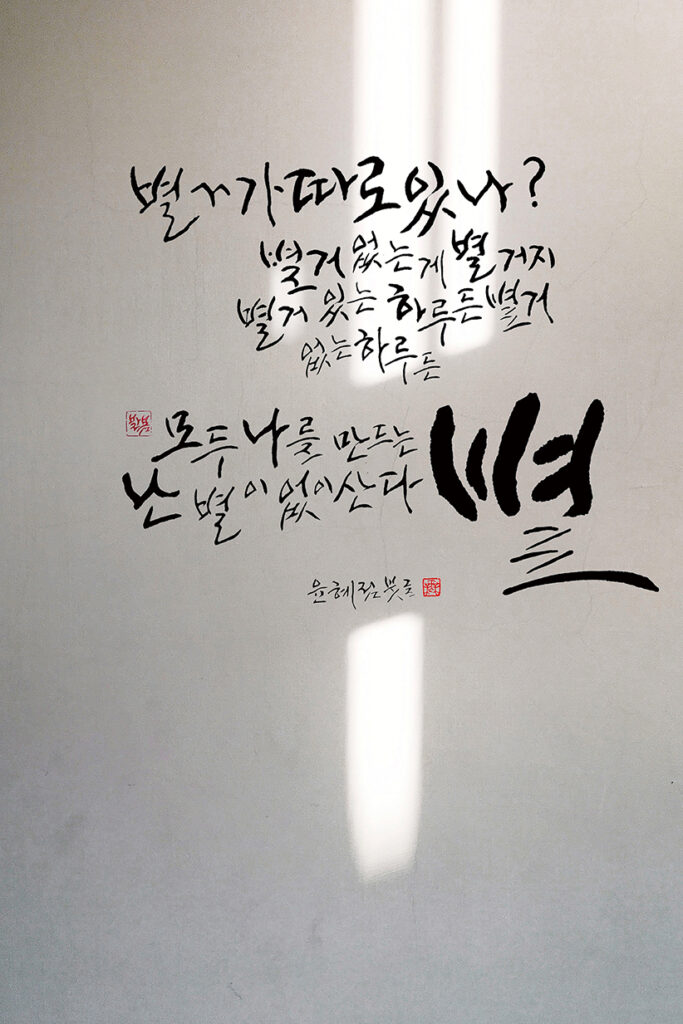 따로있나?
별거 없는게 별거지
별거 있는 하루든 별거
없는 하루든
모두 나를 만드는 별
난 별이 없이 산다